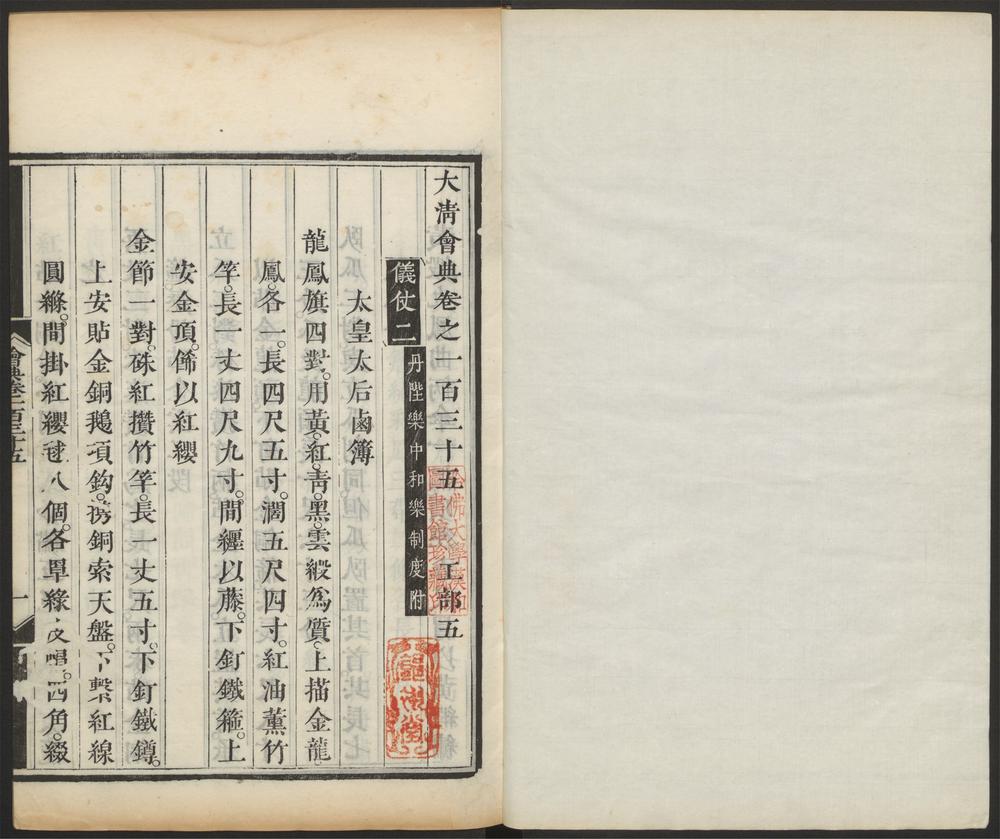 大淸會典卷之一百三十五 工部五
儀仗二 丹陛樂中和樂制度附
太皇太后鹵簿
龍鳳旗四對。用黃。紅。靑。黑。雲緞爲質。上描金龍
鳳。各一。長四尺五寸。濶五尺四寸。紅油薰竹
竿。長一丈四尺九寸。間纏以藤。下釘鐵箍。上
安金頂。飾以紅纓
金節一對。硃紅攢竹竿。長一丈五寸。下釘鐵鐏。
上安貼金銅鵝項鈎。銅索天盤。下繫紅線
圓縧。間掛紅纓毬八個。各罩綠。四角。綴
會典卷一百三十五
一
哈佛大學漢和圖書館珍藏印